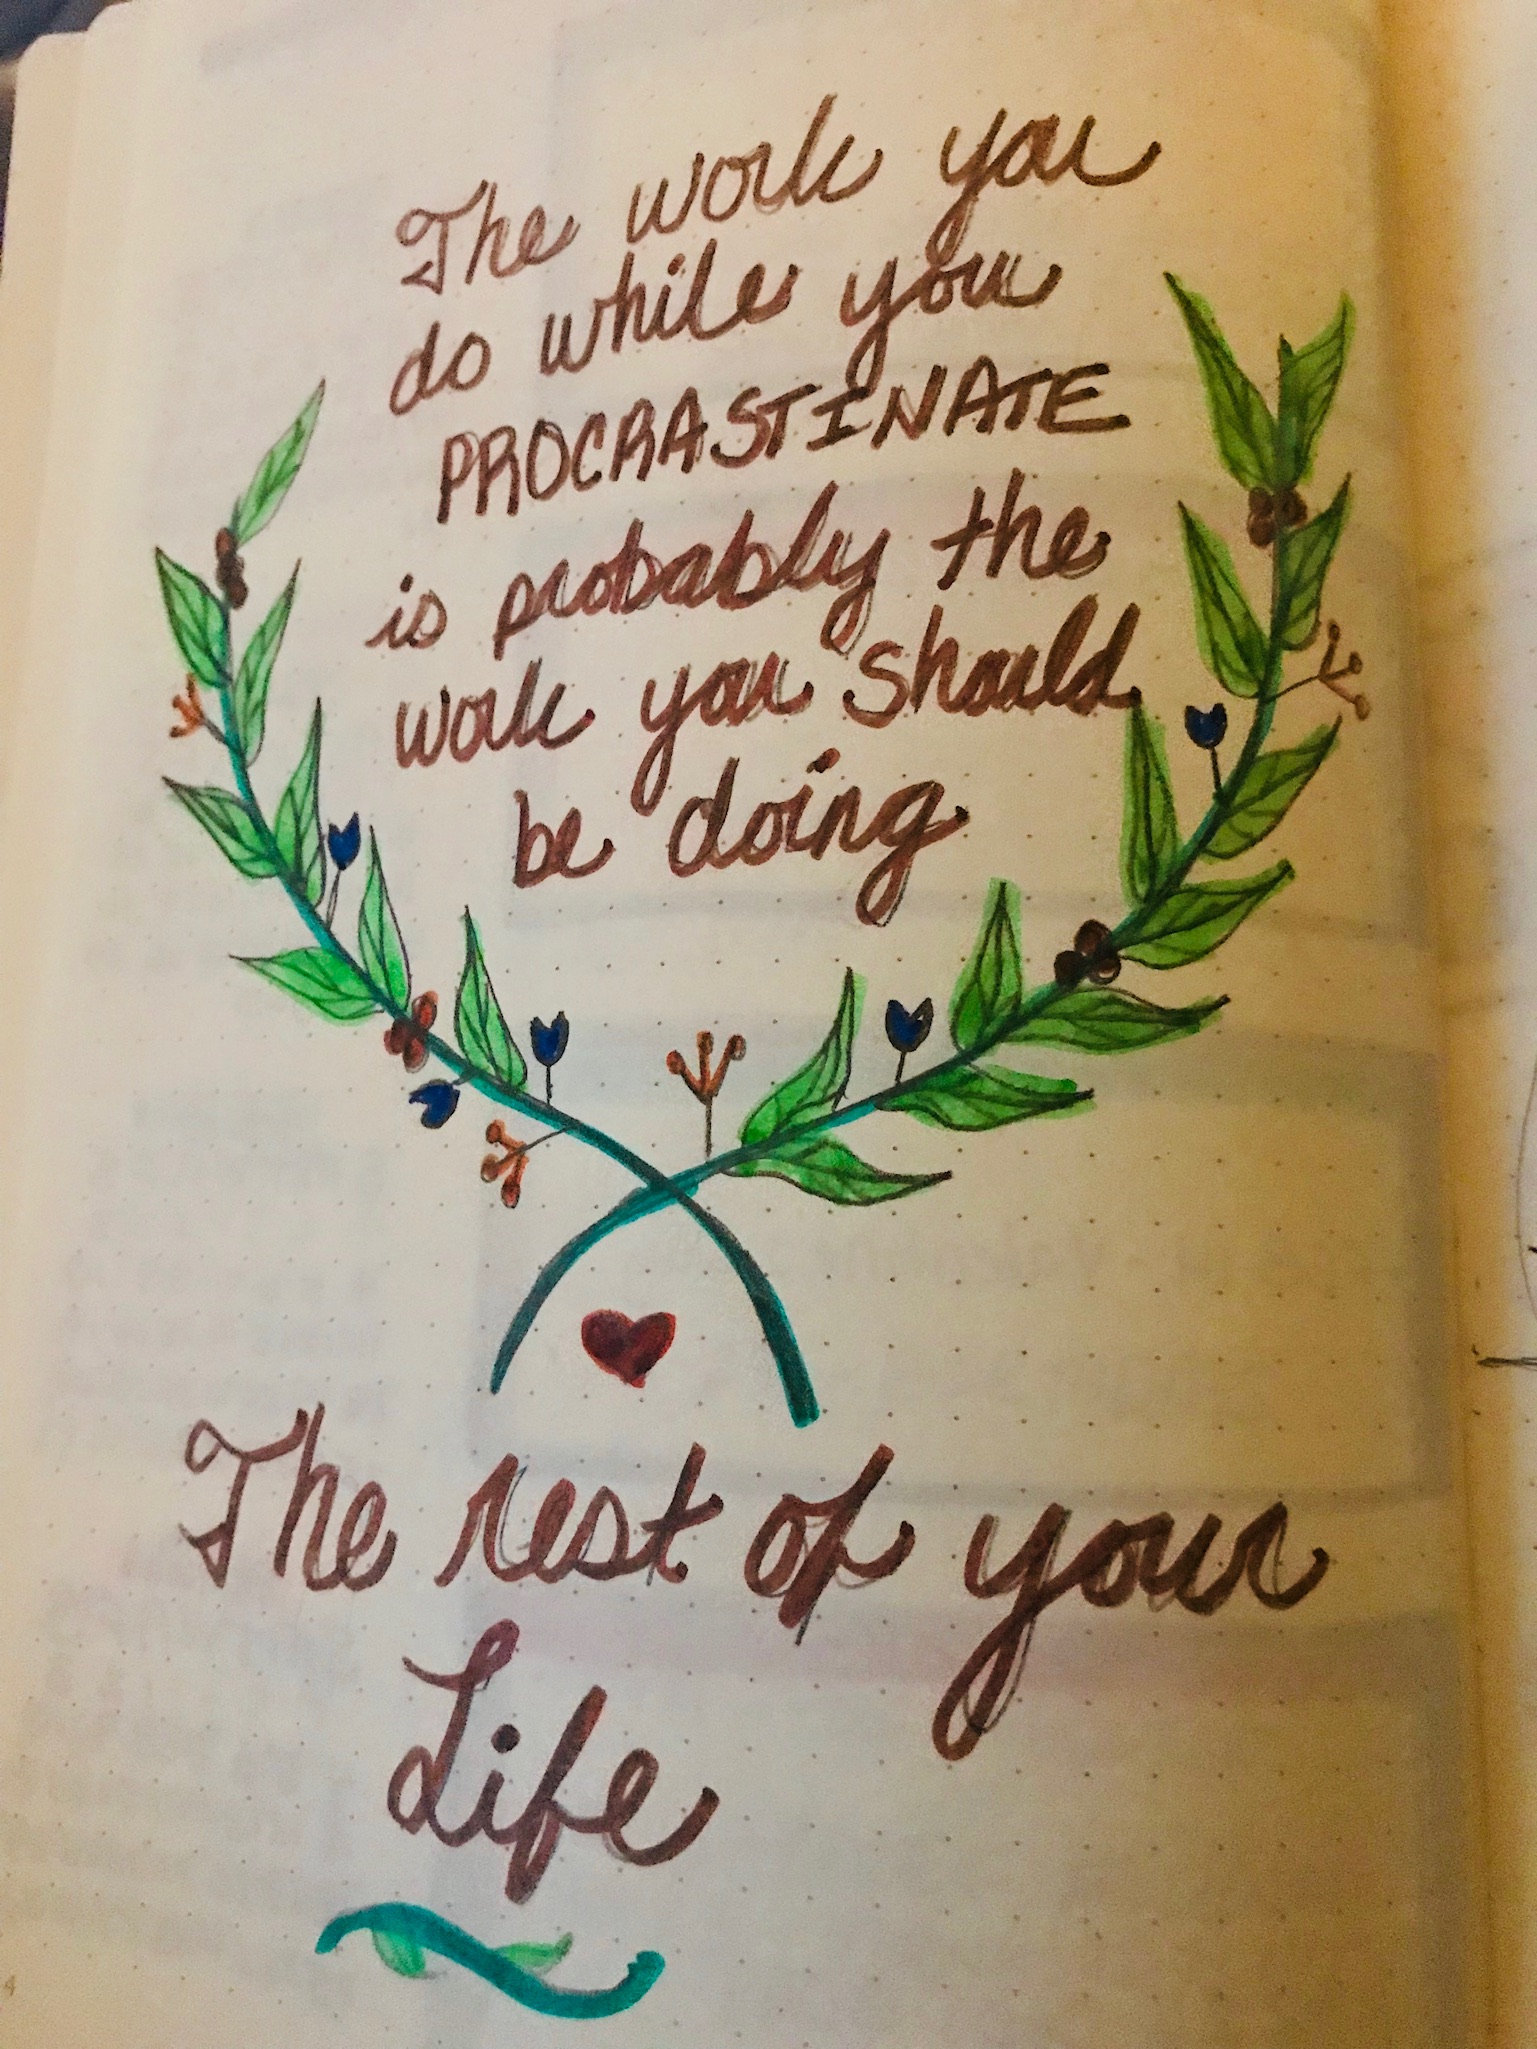 The work you
do while you
PROCRASTINATE
is probably the
work you should
be doing
The rest of your
Life
4